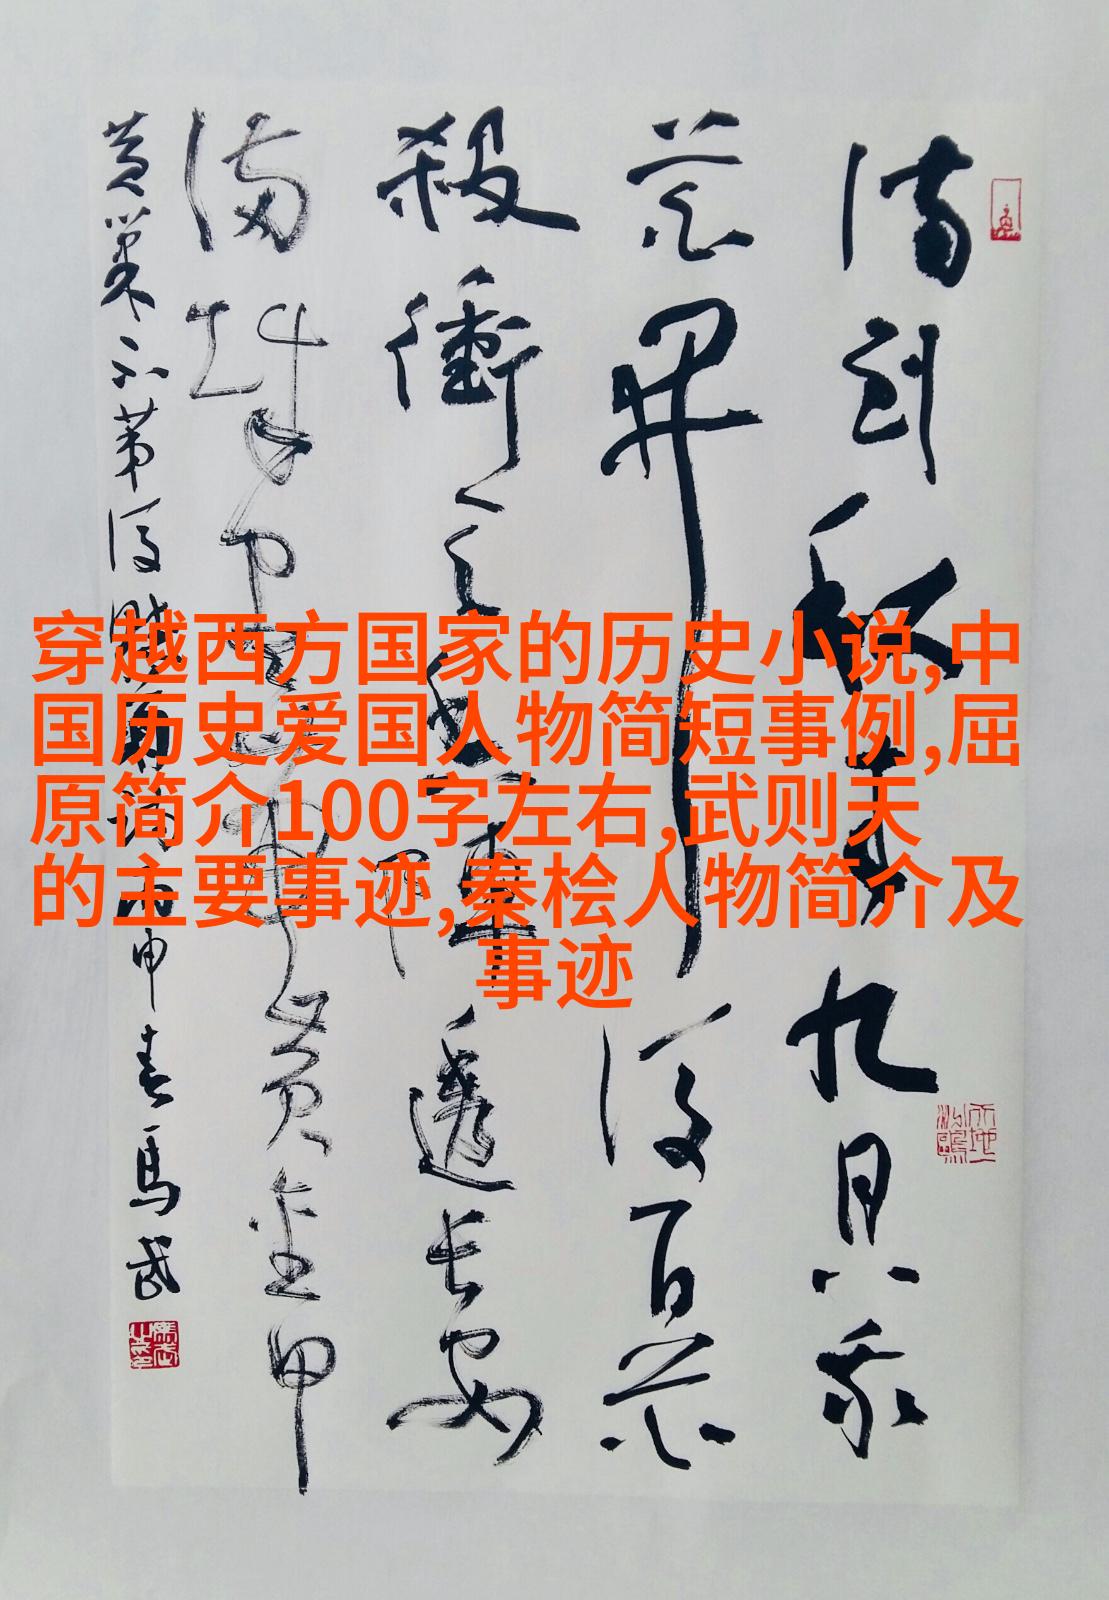 待到秋来九月八我
花開後百花
殺衝天香陣透長安
满城盡帶黄金甲
黄巢不第後賦菊詩丙申春馬武
穿越西方国家的历史小说,中
国历史爱国人物简短事例,屈
原简介100字左右,武则天
的主要事迹,秦桧人物简介及
事迹